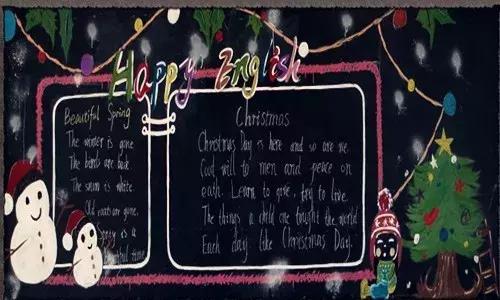 Happy English
Beautiful Spring
The winter is gone
The birds are back
The swan is white
Old coats are gone,
is a
time
Christmas
Christmas Day is here and so are we
Good will to men and peace on
each. Learn to give, try to love
The things a child one tought the world
Each day like Christmas Day.